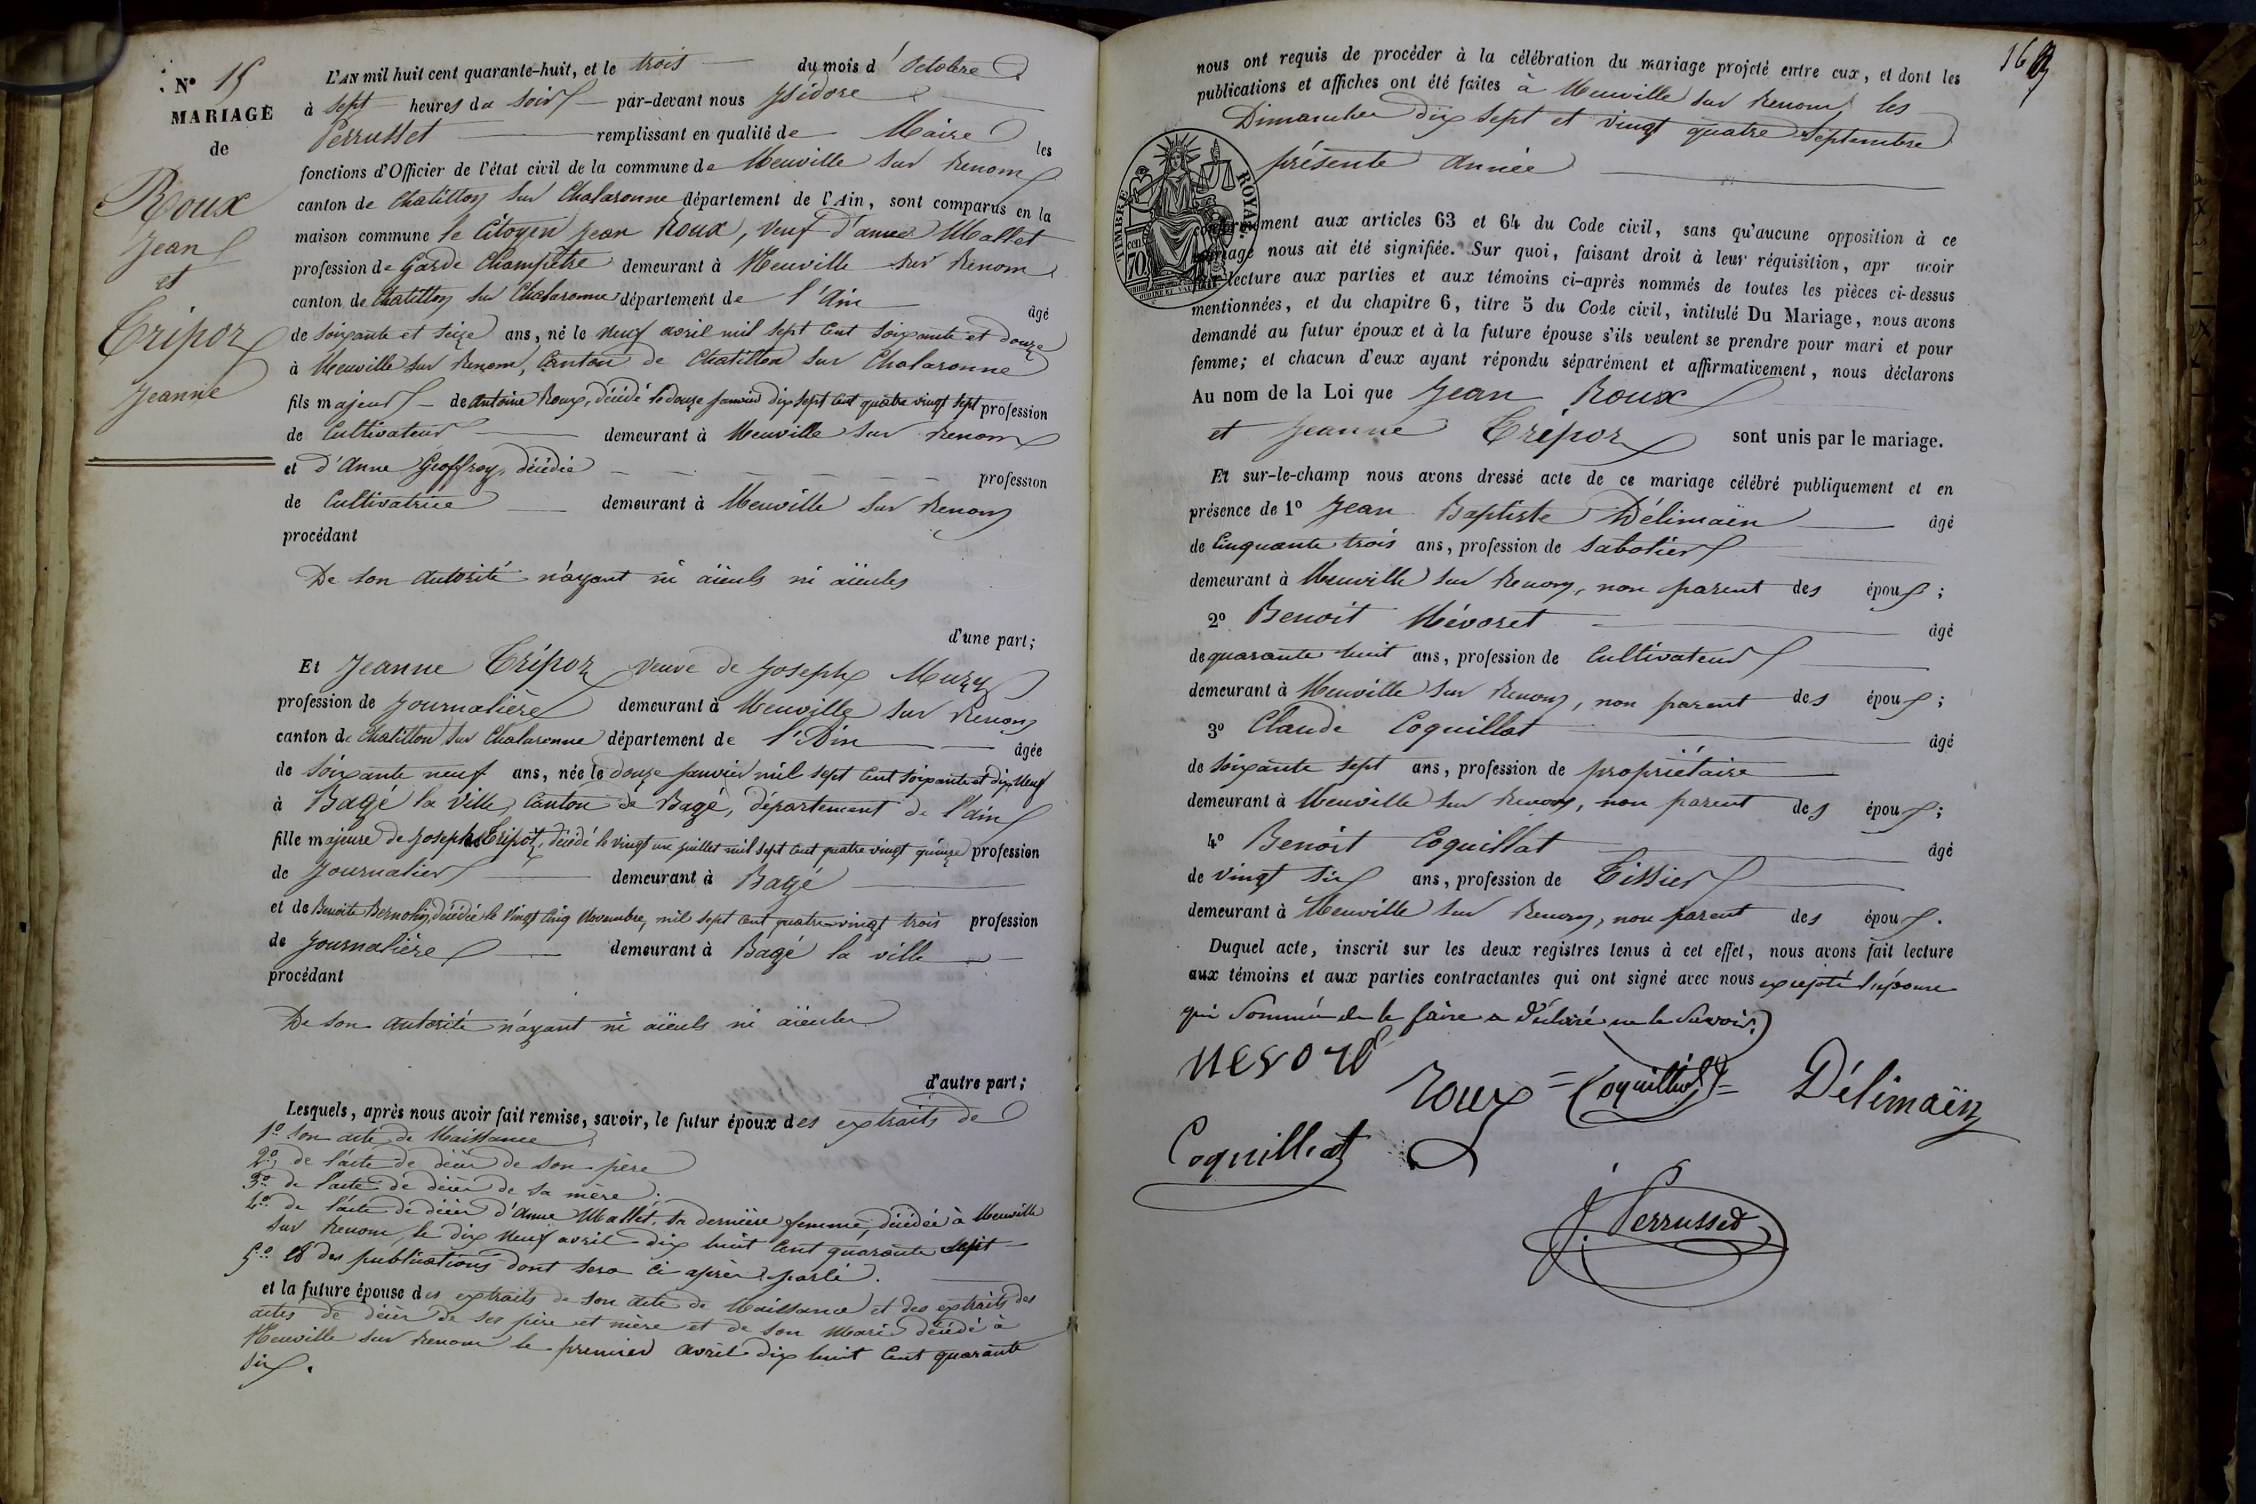 N° 15
MARIAGE
de
Roux
Jean
et
Tripoz
Jeanne
L'AN mil huit cent quarante-huit, et le trois du mois d'Octobre
à sept heures du soir par-devant nous Isidore
Perrusset remplissant en qualité de Maire les
fonctions d'Officier de l'état civil de la commune de Neuville sur Renom
canton de Chatillon sur Chalaronne département de l'Ain, sont comparus en la
maison commune le Citoyen Jean Roux, Veuf d'anne Mallet
profession de Garde Champêtre demeurant à Neuville sur Renom
canton de Chatillon sur Chalaronne département de l'Ain âgé
de soixante et seize ans, né le neuf avril mil sept cent soixante et douze
à Neuville sur Renom, Canton de Chatillon sur Chalaronne
fils majeur de Antoine Roux, décédé le douze janvier dix sept cent quatre vingt sept profession
de Cultivateur demeurant à Neuville sur Renom
et d'Anne Geoffroy, décédée profession
de Cultivatrice demeurant à Neuville sur Renom
procédant
De son autorité n'ayant ni aïeuls ni aïeules
d'une part;
Et Jeanne Trépoz veuve de Joseph Muzy
profession de Journalière demeurant à Neuville sur Renom
canton de Chatillon sur Chalaronne département de l'Ain âgée
de soixante neuf ans, née le douze janvier mil sept cent soixante et dix neuf
à Bagé la Ville, Canton de Bagé, département de l'ain
fille majeure de Joseph Tripoz, décédé le vingt un juillet mil sept cent quatre vingt quinze profession
de Journalier demeurant à Bagé
et de Benoite Bernolin, décédée le vingt cinq Novembre, mil sept cent quatre-vingt trois profession
de Journalière demeurant à Bagé la ville
procédant
De son autorité n'ayant ni aïeuls ni aïeules
d'autre part;
Lesquels, après nous avoir fait remise, savoir, le futur époux des extraits de
1° Son acte de Naissance
2° de l'acte de décès de son père
3° de l'acte de décès de sa mère
4° de l'acte de décès d'Anne Mallet, sa dernière femme, décédée à Neuville
sur Renom, le dix neuf avril dix huit cent quarante sept
5° et des publications dont sera ci après parlé.
et la future épouse des extraits de son acte de Naissance et des extraits des
actes de décès de ses père et mère et de son Mari décédé à
Neuville sur Renom le premier avril dix huit cent quarante
six.
16
nous ont requis de procéder à la célébration du mariage projeté entre eux, et dont les
publications et affiches ont été faites à Neuville sur Renom les
Dimanches dix sept et vingt quatre Septembre
présente année
TIMBRE ROYAL
cen. 70
conformément aux articles 63 et 64 du Code civil, sans qu'aucune opposition à ce
mariage nous ait été signifiée. Sur quoi, faisant droit à leur réquisition, apr avoir
fait lecture aux parties et aux témoins ci-après nommés de toutes les pièces ci-dessus
mentionnées, et du chapitre 6, titre 5 du Code civil, intitulé Du Mariage, nous avons
demandé au futur époux et à la future épouse s'ils veulent se prendre pour mari et pour
femme; et chacun d'eux ayant répondu séparément et affirmativement, nous déclarons
Au nom de la Loi que Jean Roux
et Jeanne Trépoz sont unis par le mariage.
Et sur-le-champ nous avons dressé acte de ce mariage célébré publiquement et en
présence de 1° Jean Baptiste Délimaën âgé
de Cinquante trois ans, profession de Sabotier
demeurant à Neuville sur Renom, non parent des époux;
2° Benoit Névoret âgé
de quarante huit ans, profession de Cultivateur
demeurant à Neuville sur Renom, non parent des époux;
3° Claude Coquillat âgé
de soixante sept ans, profession de propriétaire
demeurant à Neuville sur Renom, non parent des époux;
4° Benoît Coquillat âgé
de vingt six ans, profession de Tissier
demeurant à Neuville sur Renom, non parent des époux.
Duquel acte, inscrit sur les deux registres tenus à cet effet, nous avons fait lecture
aux témoins et aux parties contractantes qui ont signé avec nous excepté l'épouse
qui sommée de le faire a déclaré ne le savoir.
Roux Coquillat Délimaën
Coquillat
J. Perrusset